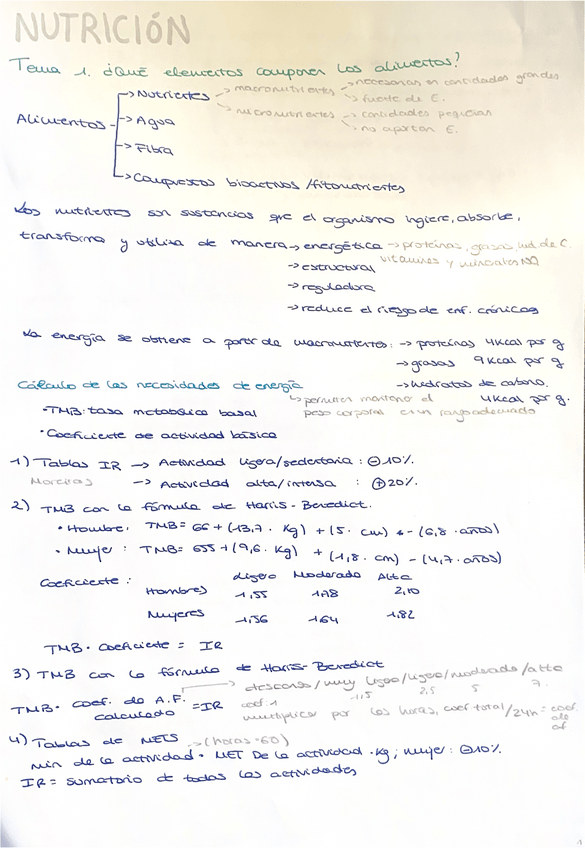 NUTRICIÓN
Tema 1. ¿Qué elementos componen los alimentos?
Alimentos
→ Nutrientes → macronutrientes → necesarias en cantidades grandes
→ fuente de E.
→ micronutrientes → cantidades pequeñas
→ no aportan E.
→ Agua
→ Fibra
→ Compuestos bioactivos / fitonutrientes
Los nutrientes son sustancias que el organismo ingiere, absorbe,
transforma y utiliza de manera → energética → proteínas, grasas, hid. de C.
vitaminas y minerales NO
→ estructural
→ reguladora
→ reduce el riesgo de enf. crónicas
La energía se obtiene a partir de macronutrientes: → proteínas 4Kcal por g
→ grasas 9Kcal por g
→ hidratos de carbono.
4Kcal por g.
Cálculo de las necesidades de energía
↳ permiten mantener el
peso corporal en un rango adecuado
· TMB: tasa metabólica basal
· Coeficiente de actividad básica
1) Tablas IR → Actividad ligera/sedentaria : ⊖10%.
Moreiras → Actividad alta/intensa : ⊕20%.
2) TMB con la fórmula de Harris-Benedict.
· Hombre: TMB = 66 + (13,7 · Kg) + (5 · cm) - (6,8 · años)
· Mujer : TMB = 655 + (9,6 · Kg) + (1,8 · cm) - (4,7 · años)
Coeficiente : Ligero Moderado Alta
Hombres 1,55 1,78 2,10
Mujeres 1,56 1,64 1,82
TMB · Coeficiente = IR
3) TMB con la fórmula de Harris-Benedict
→ descanso / muy ligera / ligera / moderado / alta
TMB · coef. de A.F. calculado = IR
coef. 1 1,5 2,5 5 7
multiplicar por las horas, coef total/24h = coef.
de
af
4) Tablas de METS → (horas · 60)
Min de la actividad · MET De la actividad · Kg ; mujer : ⊖10%.
IR = sumatorio de todas las actividades